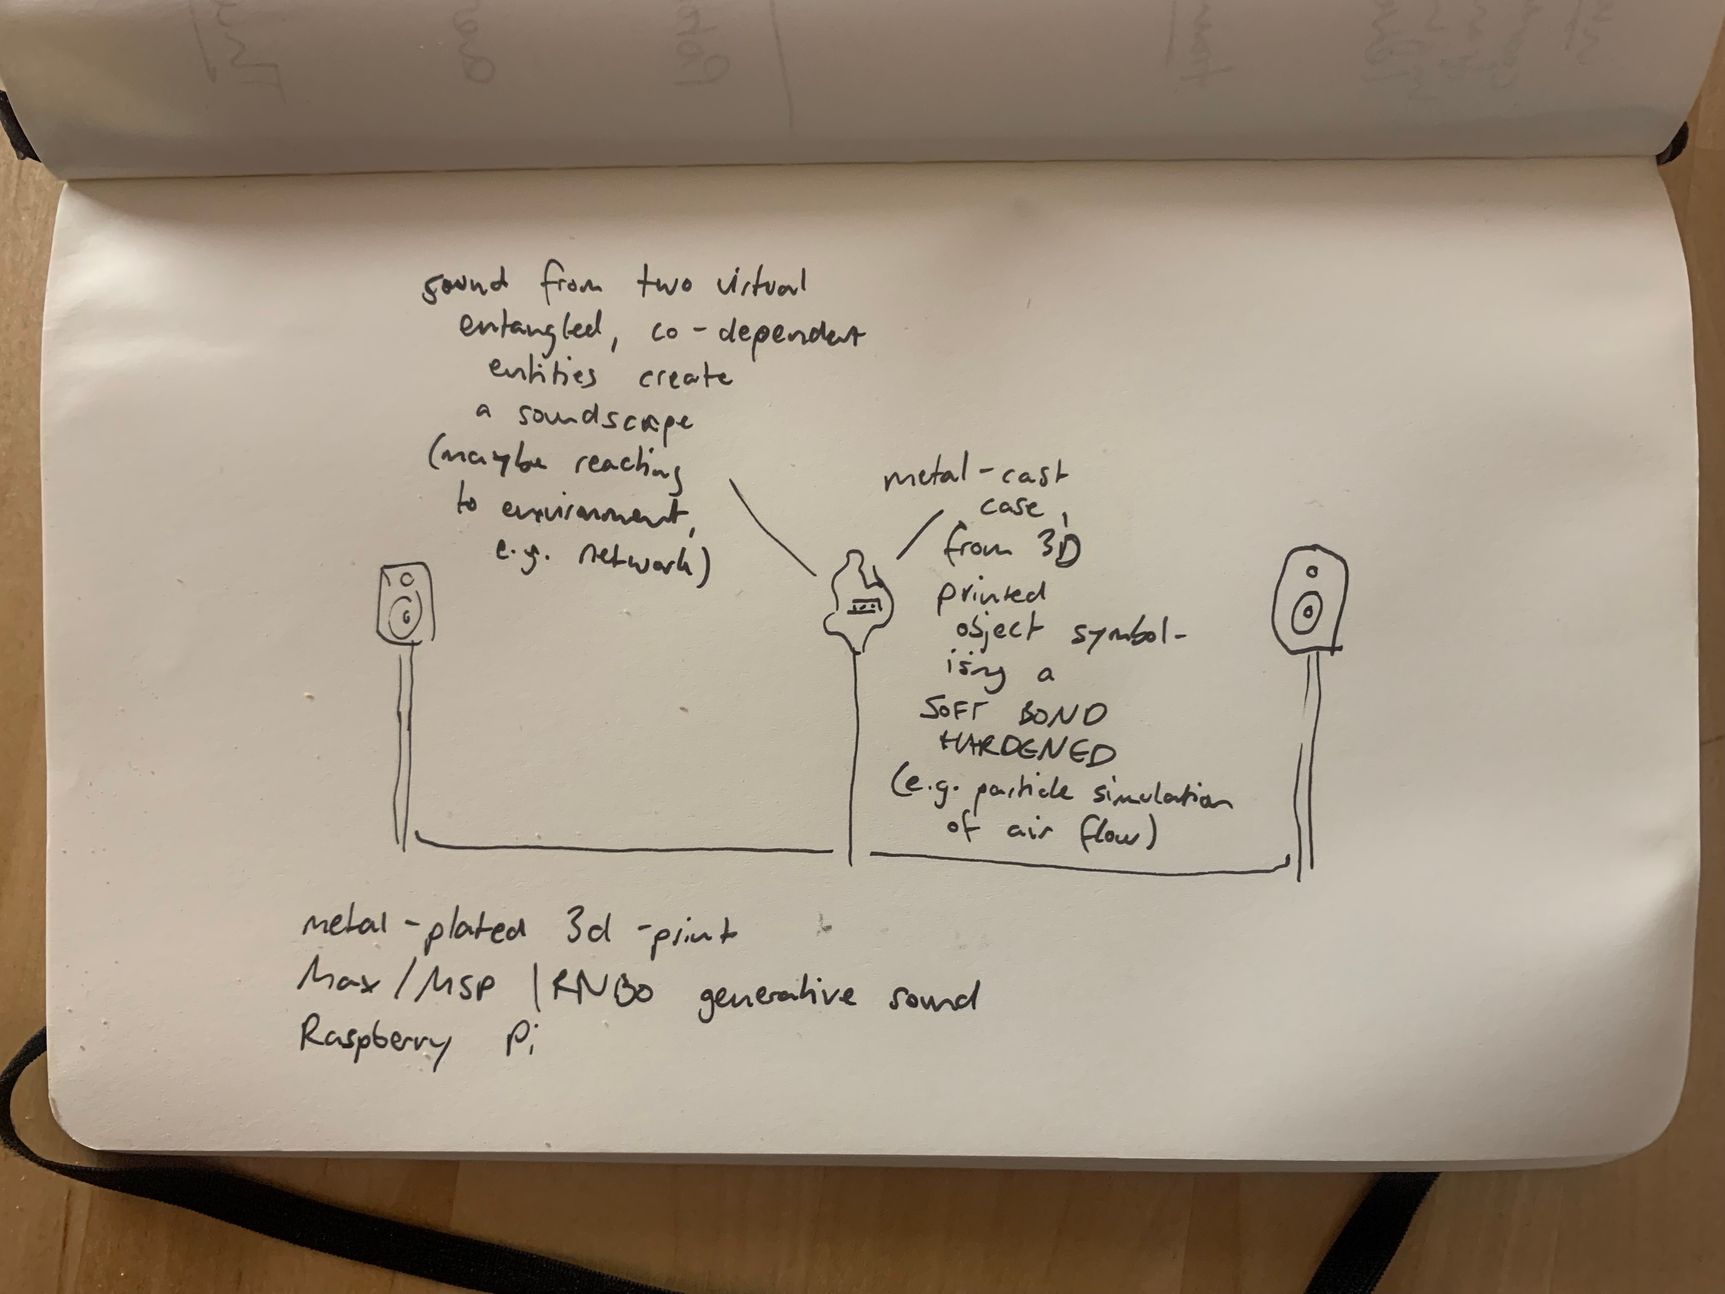 sound from two virtual
entangled, co-dependent
entities create
a soundscape
(maybe reacting
to environment,
e.g. network)
metal-cast
case,
from 3D
printed
object symbol-
ising a
SOFT BOND
HARDENED
(e.g. particle simulation
of air flow)
metal-plated 3d-print
Max/MSP | RNBO generative sound
Raspberry Pi